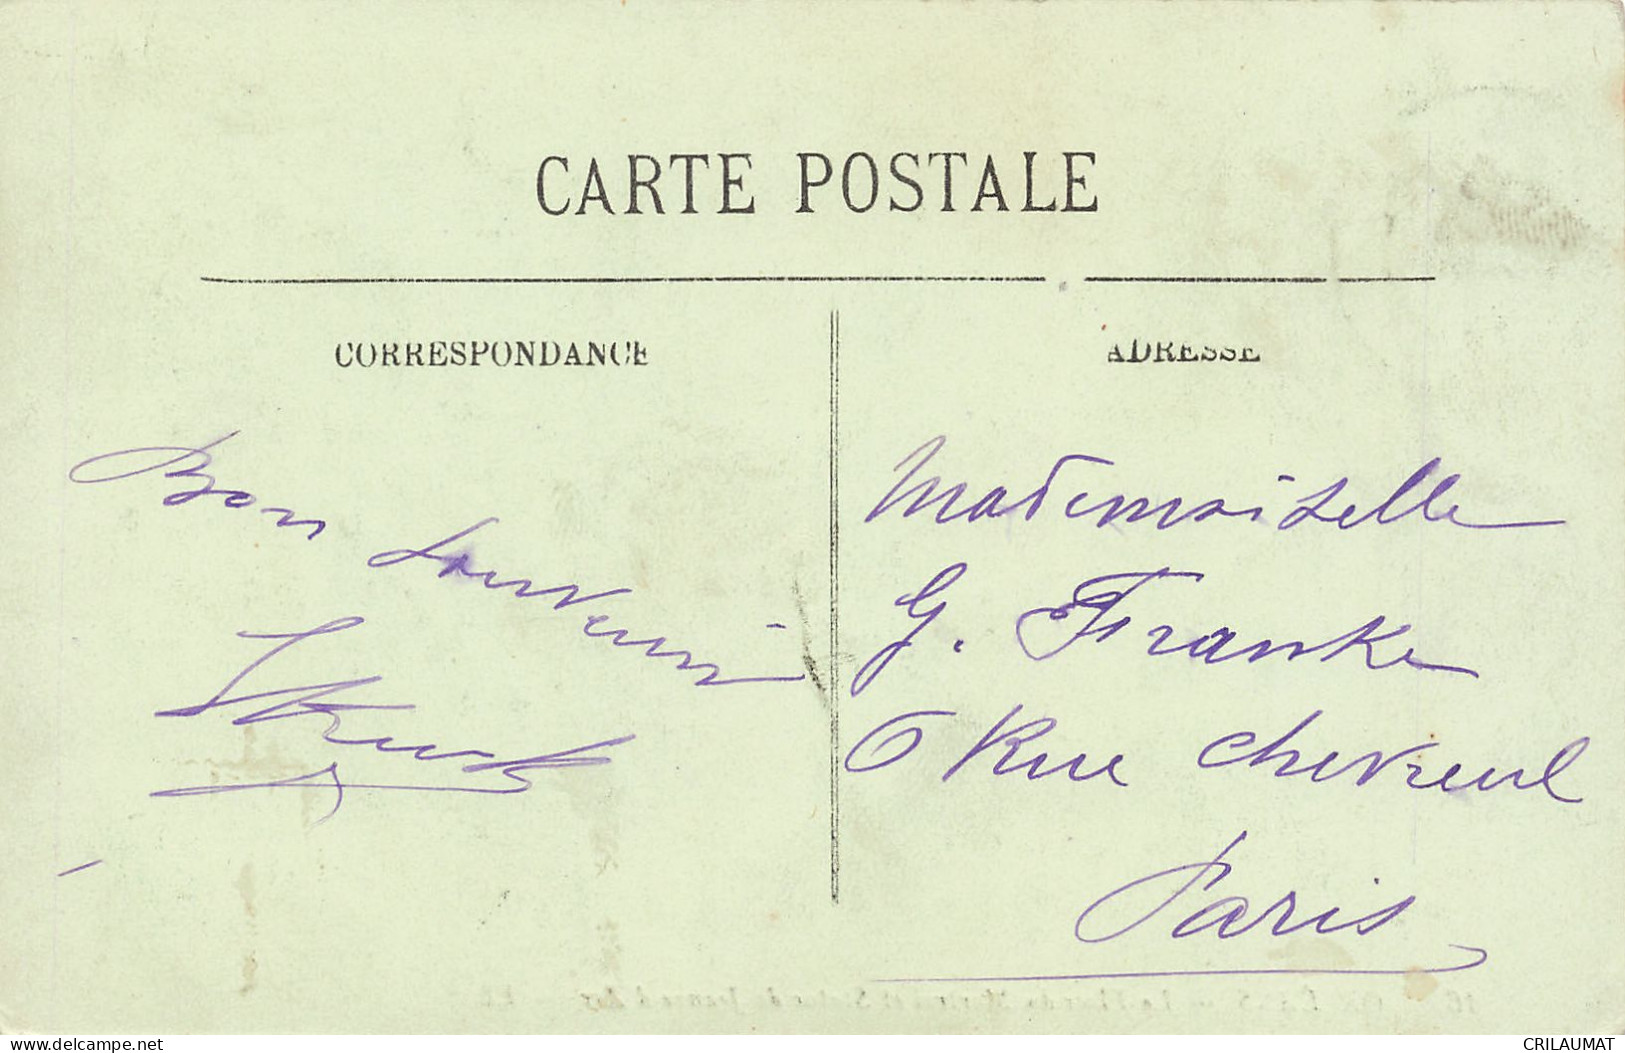 CARTE POSTALE
CORRESPONDANCE
ADRESSE
Bon
Souvenir
Mademoiselle
G. Franke
6 Rue Chevreul
Paris
www.delcampe.net
CRILAUMAT